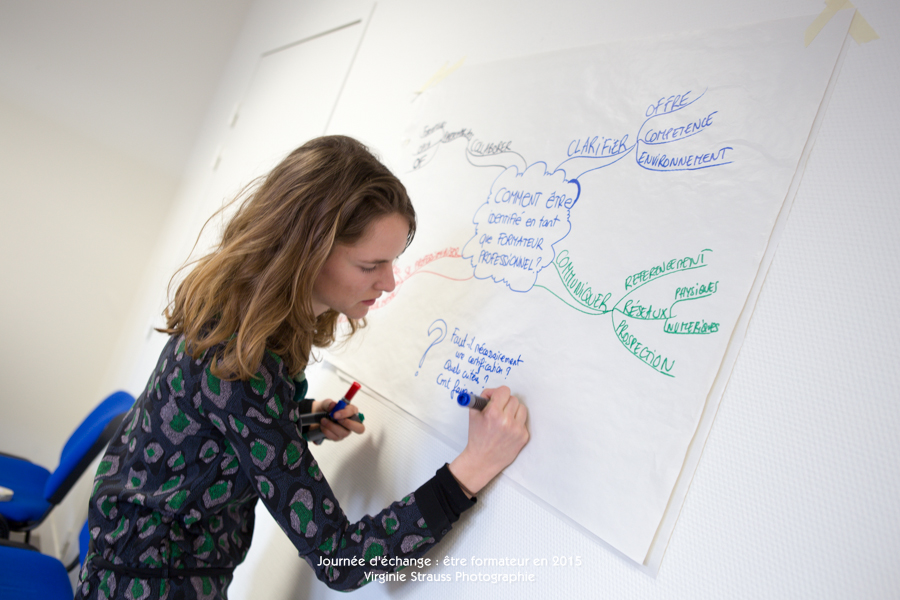 COMMENT ÊTRE
identifié en tant
que FORMATEUR
PROFESSIONNEL?
CLARIFIER
OFFRE
COMPETENCE
ENVIRONNEMENT
COMMUNIQUER
REFERENCEMENT
RÉSEAUX
PHYSIQUES
NUMERIQUES
PROSPECTION
OF
?
Faut-il nécessairement
une certification ?
Quels
Journée d'échange : être formateur en 2015
Virginie Strauss Photographie